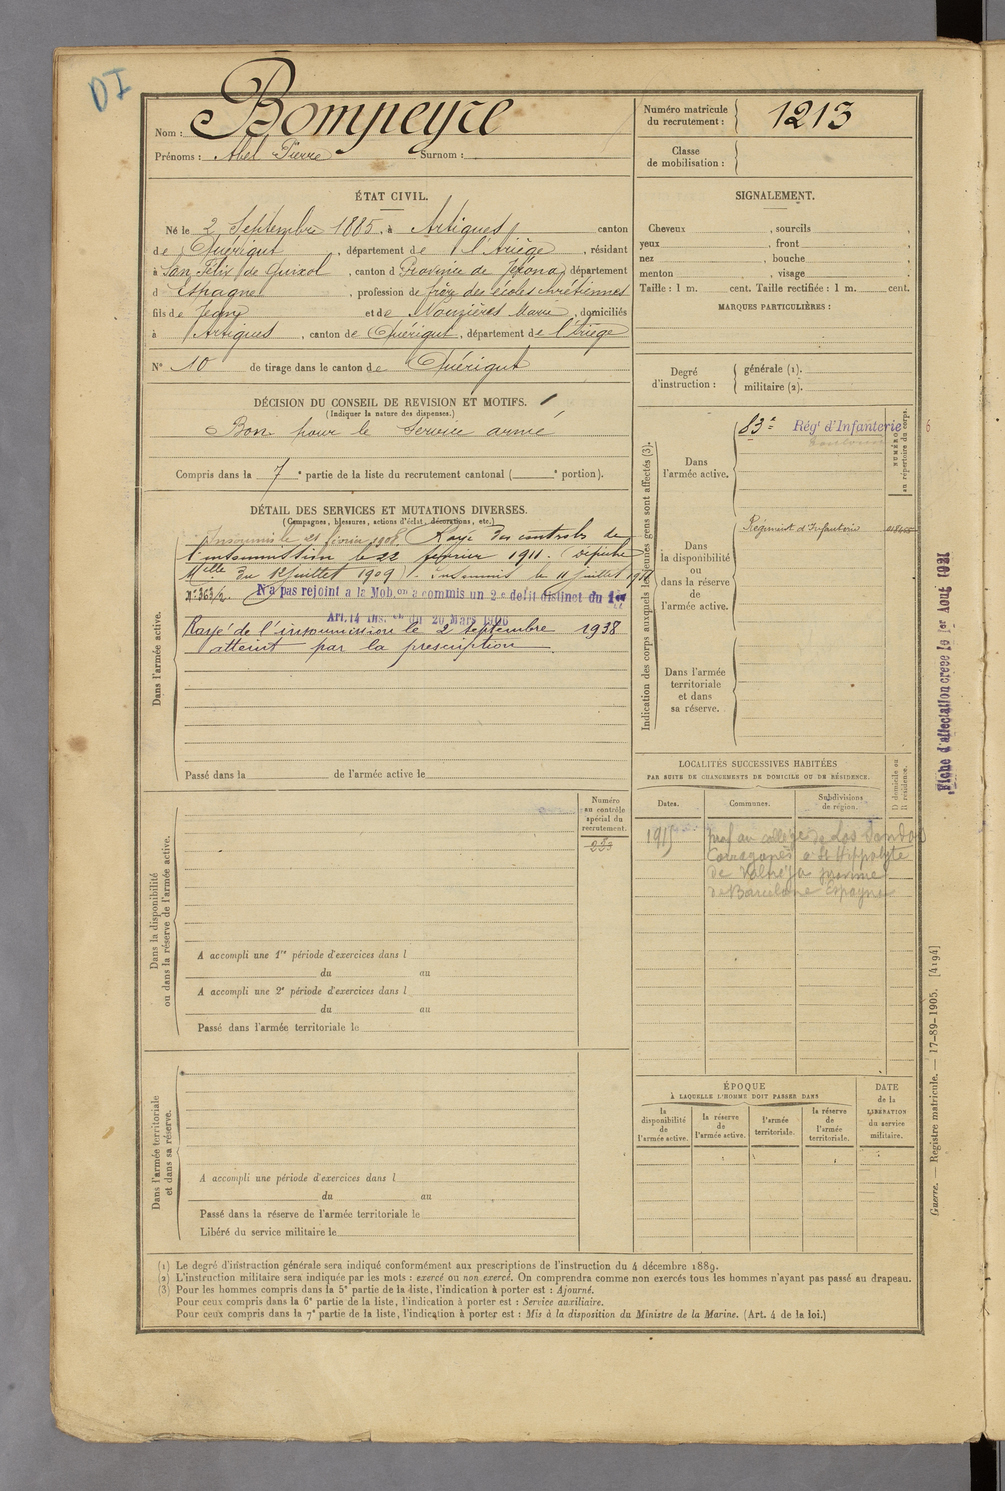 DI
Nom : Bompeyre
Prénoms : Abel Pierre Surnom :
Numéro matricule du recrutement : 1213
Classe de mobilisation :
ÉTAT CIVIL.
Né le 2 Septembre 1885, à Artigues canton
de Quérigut, département de l'Ariège, résidant
à San Féliu de Guixol, canton d Province de Jérona, département
d Espagne, profession de frère des écoles chrétiennes
fils de Jean et de Mouzières Marie, domiciliés
à Artigues, canton de Quérigut, département de l'Ariège
N° 10 de tirage dans le canton de Quérigut
DÉCISION DU CONSEIL DE REVISION ET MOTIFS.
(Indiquer la nature des dispenses.)
Bon pour le service armé
Compris dans la 7e partie de la liste du recrutement cantonal ( e portion).
DÉTAIL DES SERVICES ET MUTATIONS DIVERSES.
(Campagnes, blessures, actions d'éclat, décorations, etc.)
Insoumis le 21 février 1908. Rayé des controls de
l'insoumission le 22 février 1911. (Dépêche
Mlle du 12 juillet 1909). Insoumis le 11 juillet 1911
N° 363/2. N'a pas rejoint a la Mob.on a commis un 2e délit distinct du 1er
Art. 14 Ins. du 20 Mars 1906
Rayé de l'insoumission le 2 septembre 1938
atteint par la prescription
Dans l'armée active.
Passé dans la de l'armée active le
Dans la disponibilité
ou dans la réserve de l'armée active.
Numéro
au contrôle
spécial du
recrutement.
223
A accompli une 1re période d'exercices dans l
du au
A accompli une 2e période d'exercices dans l
du au
Passé dans l'armée territoriale le
Dans l'armée territoriale
et dans sa réserve.
A accompli une période d'exercices dans l
du au
Passé dans la réserve de l'armée territoriale le
Libéré du service militaire le
SIGNALEMENT.
Cheveux , sourcils ,
yeux , front ,
nez , bouche ,
menton , visage
Taille : 1 m. cent. Taille rectifiée : 1 m. cent.
MARQUES PARTICULIÈRES :
Degré d'instruction :
générale (1).
militaire (2).
Indication des corps auxquels les jeunes gens sont affectés (3).
NUMÉRO
au répertoire du corps.
Dans
l'armée active.
83e Régt d'Infanterie
6
Toulouse
Dans
la disponibilité
ou
dans la réserve
de
l'armée active.
Régiment d'Infanterie
Dans l'armée
territoriale
et dans
sa réserve.
LOCALITÉS SUCCESSIVES HABITÉES
PAR SUITE DE CHANGEMENTS DE DOMICILE OU DE RÉSIDENCE.
D domicile ou
R résidence.
Dates.
Communes.
Subdivisions
de région.
1915 prof au collège de Los
à St Hippolyte
de
de Barcelone Espagne
ÉPOQUE
À LAQUELLE L'HOMME DOIT PASSER DANS
la
disponibilité
de
l'armée active.
la réserve
de
l'armée active.
l'armée
territoriale.
la réserve
de
l'armée
territoriale.
DATE
de la
LIBÉRATION
du service
militaire.
Fiche d'affectation créée le 1er Aout 1921
Guerre. — Registre matricule. — 17-89-1905. [4194]
(1) Le degré d'instruction générale sera indiqué conformément aux prescriptions de l'instruction du 4 décembre 1889.
(2) L'instruction militaire sera indiquée par les mots : exercé ou non exercé. On comprendra comme non exercés tous les hommes n'ayant pas passé au drapeau.
(3) Pour les hommes compris dans la 5e partie de la liste, l'indication à porter est : Ajourné.
Pour ceux compris dans la 6e partie de la liste, l'indication à porter est : Service auxiliaire.
Pour ceux compris dans la 7e partie de la liste, l'indication à porter est : Mis à la disposition du Ministre de la Marine. (Art. 4 de la loi.)